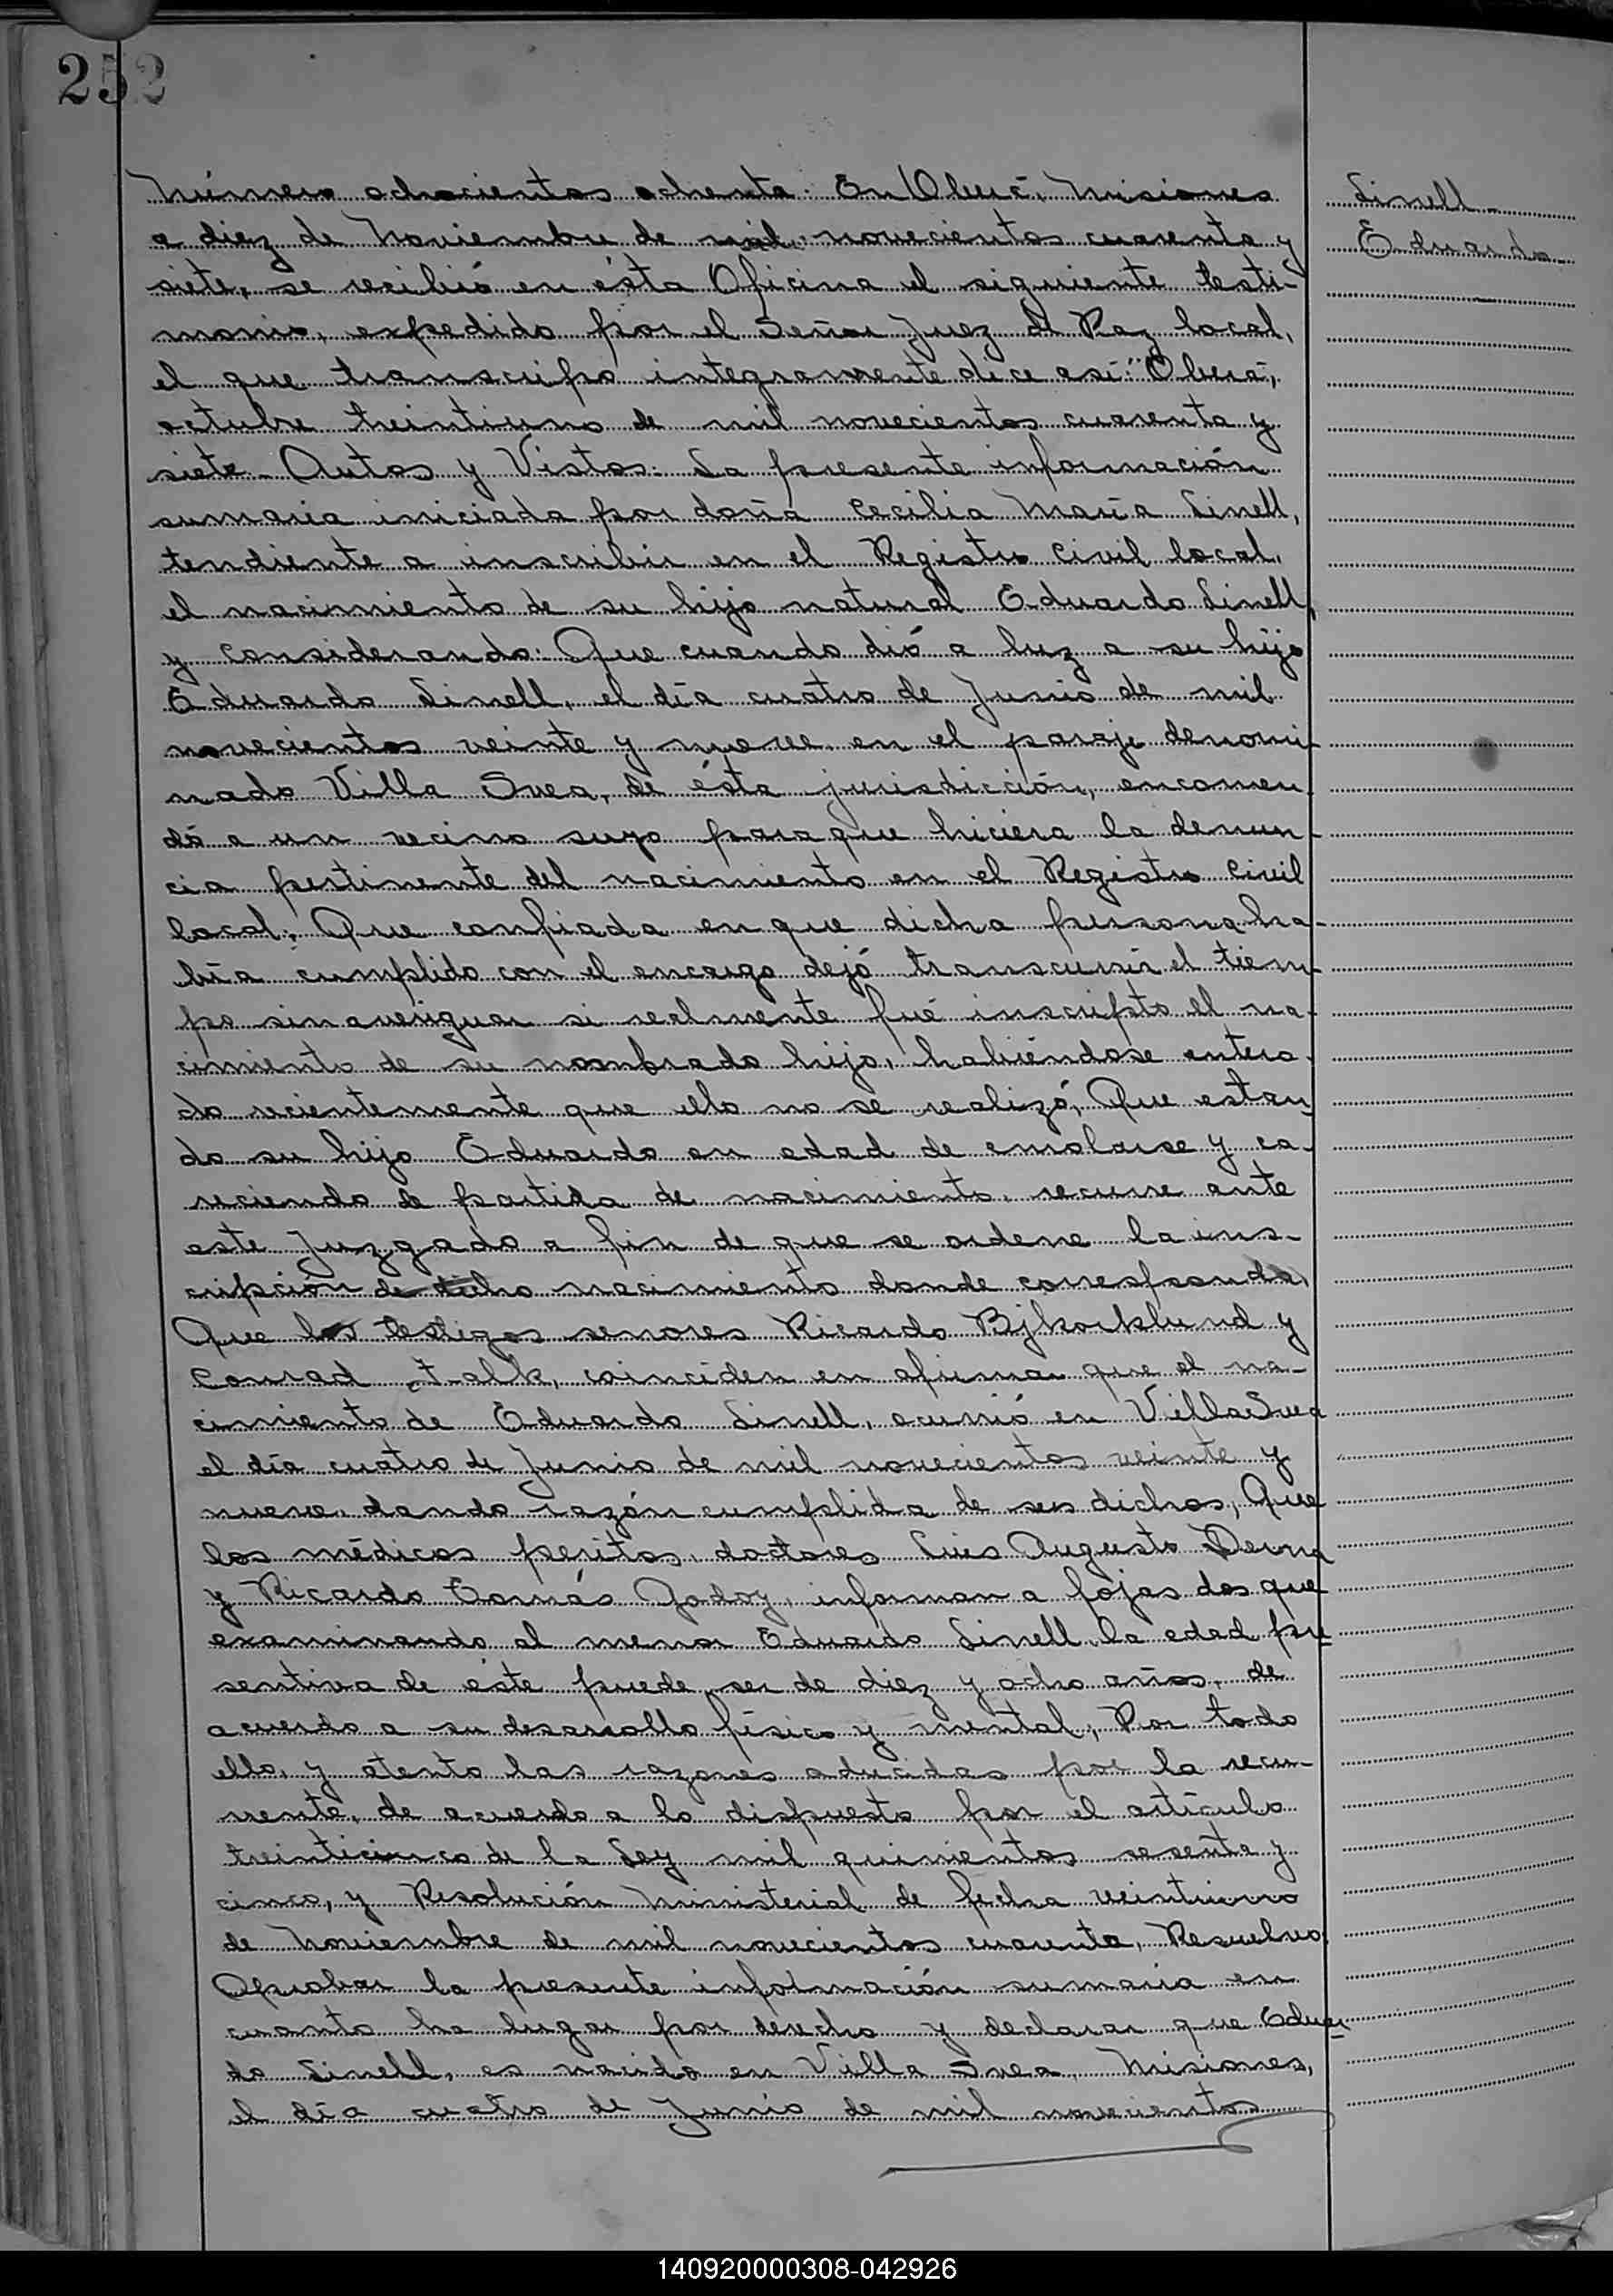 252
Número ochocientos ochenta: En Oberá, Misiones
a diez de Noviembre de mil novecientos cuarenta y
siete, se recibió en ésta Oficina el siguiente testi-
monio, expedido por el Señor Juez de Paz local,
el que transcripto integramente dice así: "Oberá,
octubre treintiuno de mil novecientos cuarenta y
siete. Autos y Vistos: La presente información
sumaria iniciada por doña Cecilia María Linell,
tendiente a inscribir en el Registro Civil local,
el nacimiento de su hijo natural Eduardo Linell,
y Considerando: Que cuando dió a luz a su hijo
Eduardo Linell, el día cuatro de Junio de mil
novecientos veinte y nueve en el paraje denomi-
nado Villa Svea, de ésta jurisdicción, encomen-
dó a un vecino suyo para que hiciera la denun-
cia pertinente del nacimiento en el Registro Civil
local; Que confiada en que dicha persona ha-
bía cumplido con el encargo dejó transcurrir el tiem-
po sin averiguar si realmente fué inscripto el na-
cimiento de su nombrado hijo, habiéndose entera-
do recientemente que ello no se realizó; Que estan-
do su hijo Eduardo en edad de enrolarse y ca-
reciendo de partida de nacimiento, recurre ante
este Juzgado a fin de que se ordene la ins-
cripción de dicho nacimiento donde corresponda,
Que los testigos senores Ricardo Bjkorklund y
Conrad Falk, coinciden en afirmar que el na-
cimiento de Eduardo Linell, ocurrió en Villa Svea
el día cuatro de Junio de mil novecientos veinte y
nueve, dando razón cumplida de sus dichos, Que
los médicos peritos, doctores Luis Augusto Derna
y Ricardo Tomás Godoy, informan a fojas dos que
examinando al menor Eduardo Linell, la edad pre
sentiva de éste puede ser de diez y ocho años, de
acuerdo a su desarrollo físico y mental; Por todo
ello, y atento las razones aducidas por la recu-
rrente, de acuerdo a lo dispuesto por el artículo
treinticinco de la Ley mil quinientos sesenta y
cinco, y Resolución Ministerial de fecha veintiuno
de Noviembre de mil novecientos cuarenta, Resuelvo:
Aprobar la presente información sumaria en
cuanto ha lugar por derecho y declarar que Eduar
do Linell, es nacido en Villa Svea, Misiones,
el día cuatro de Junio de mil novecientos
Linell
Eduardo
140920000308-042926